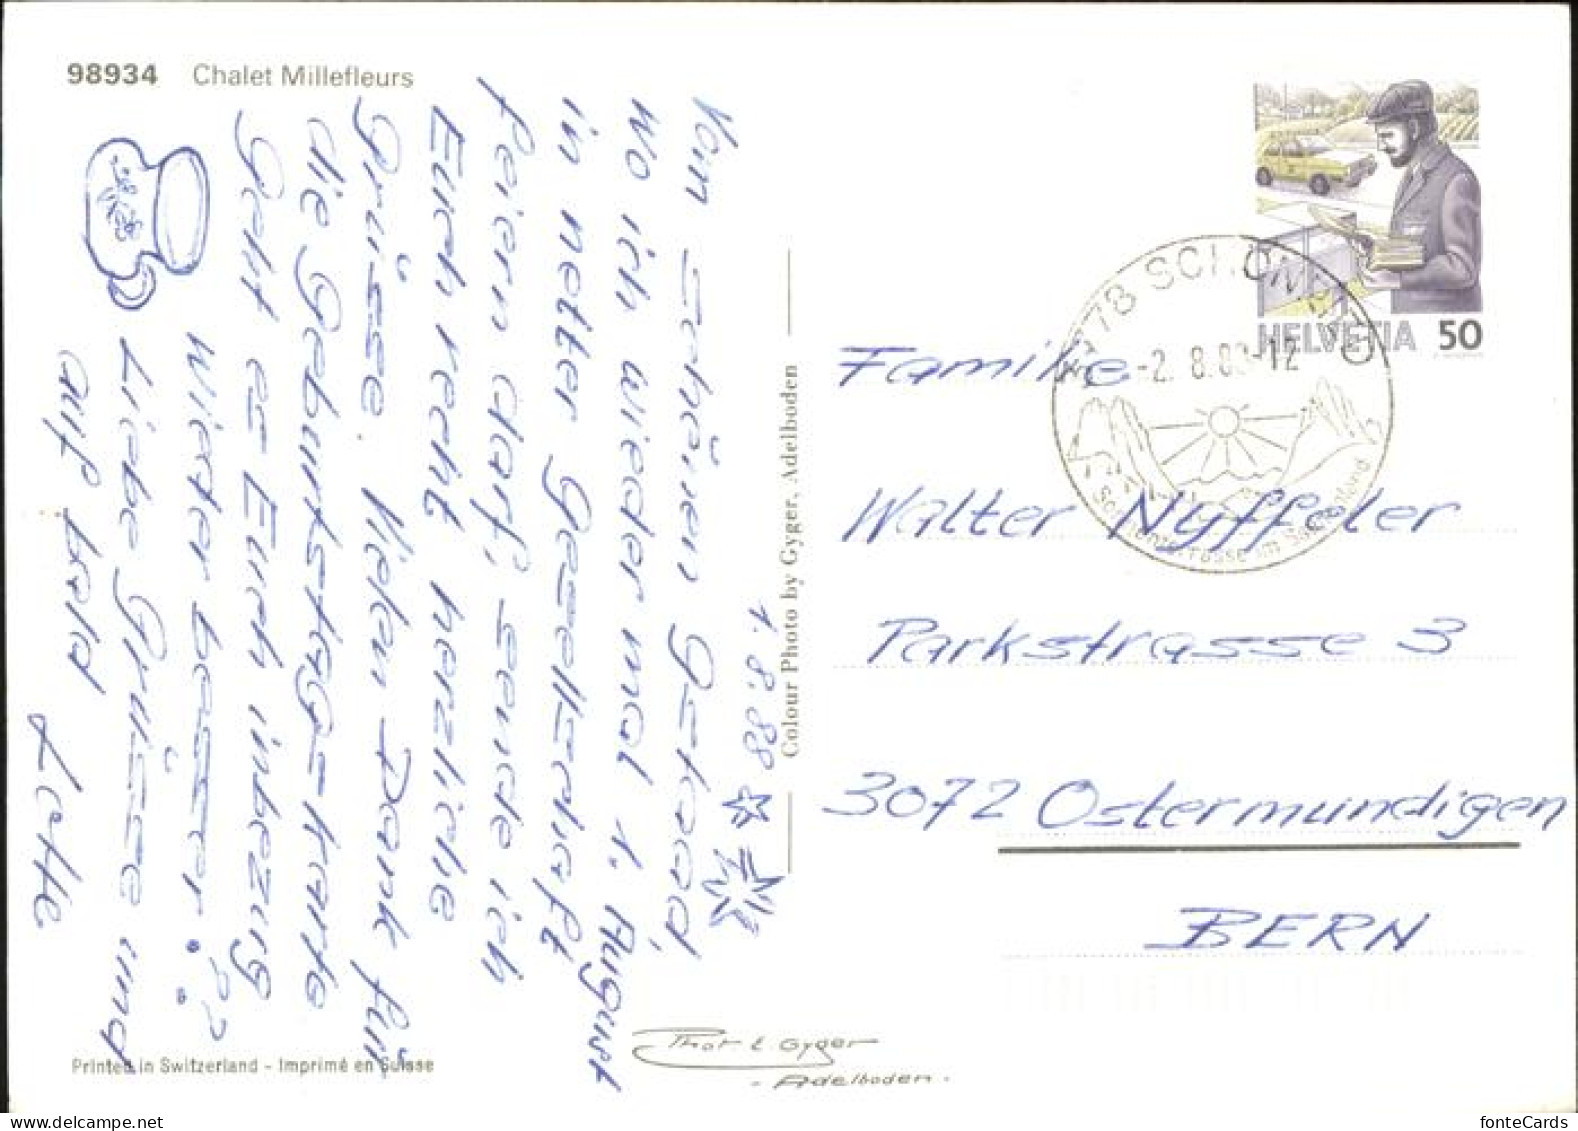 98934 Chalet Millefleurs
1.8.88
Vom schönen Gstaad,
wo ich wieder mal 1. August
in netter Gesellschaft
feiern darf, sende ich
Euch recht herzliche
Grüsse. Vielen Dank für
die Geburtstags-karte
Geht es Euch inbezug
Wieder besser. ??
Liebe Grüsse und
auf bald
Lotte
Colour Photo by Gyger, Adelboden
Printed in Switzerland - Imprimé en Suisse
Phot. E. Gyger
- Adelboden -
HELVETIA 50
3778 SCHÖNRIED
-2.8.88-12
Sonnenterrasse im Saanenland
Familie
Walter Nyffeler
Parkstrasse 3
3072 Ostermundigen
BERN
fonteCards